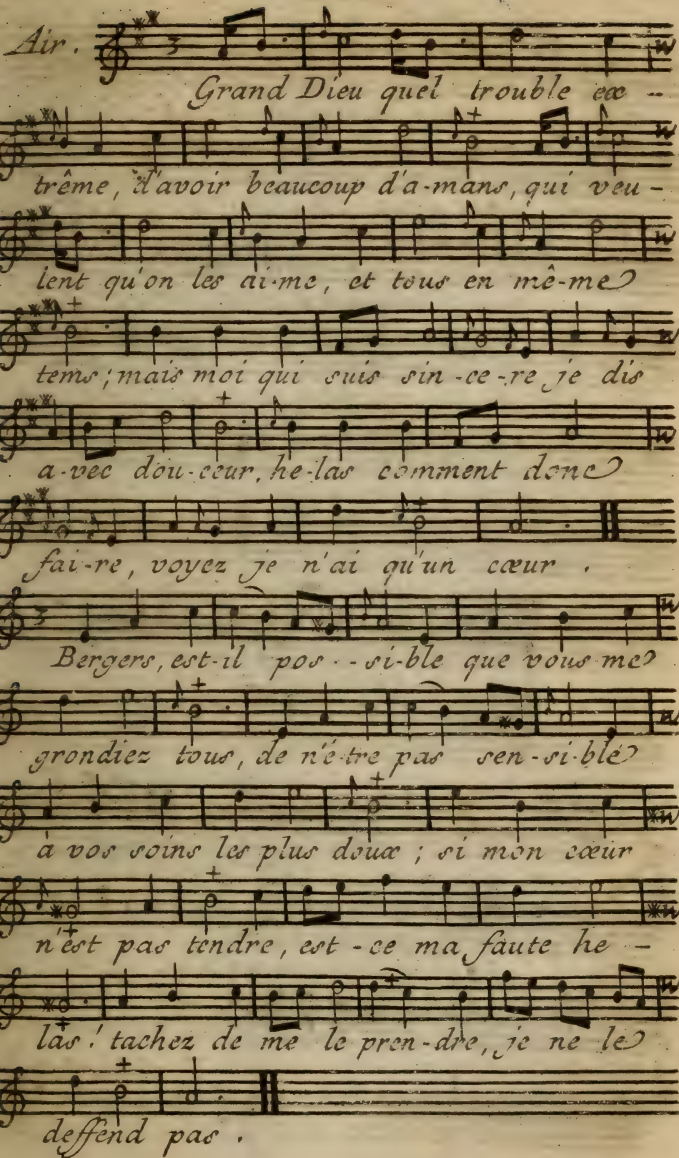 Air. 3
Grand Dieu quel trouble ex -
trême, d'avoir beaucoup d'a-mans, qui veu -
lent qu'on les ai-me, et tous en mê-me
tems; mais moi qui suis sin-ce-re je dis
a-vec dou-ceur, he-las comment donc
fai-re, voyez je n'ai qu'un cœur .
3
Bergers, est-il pos - si-ble que vous me
grondiez tous, de n'é-tre pas sen-si-ble
à vos soins les plus doux ; si mon cœur
n'est pas tendre, est-ce ma faute he -
las ! tachez de me le pren-dre, je ne le
deffend pas .